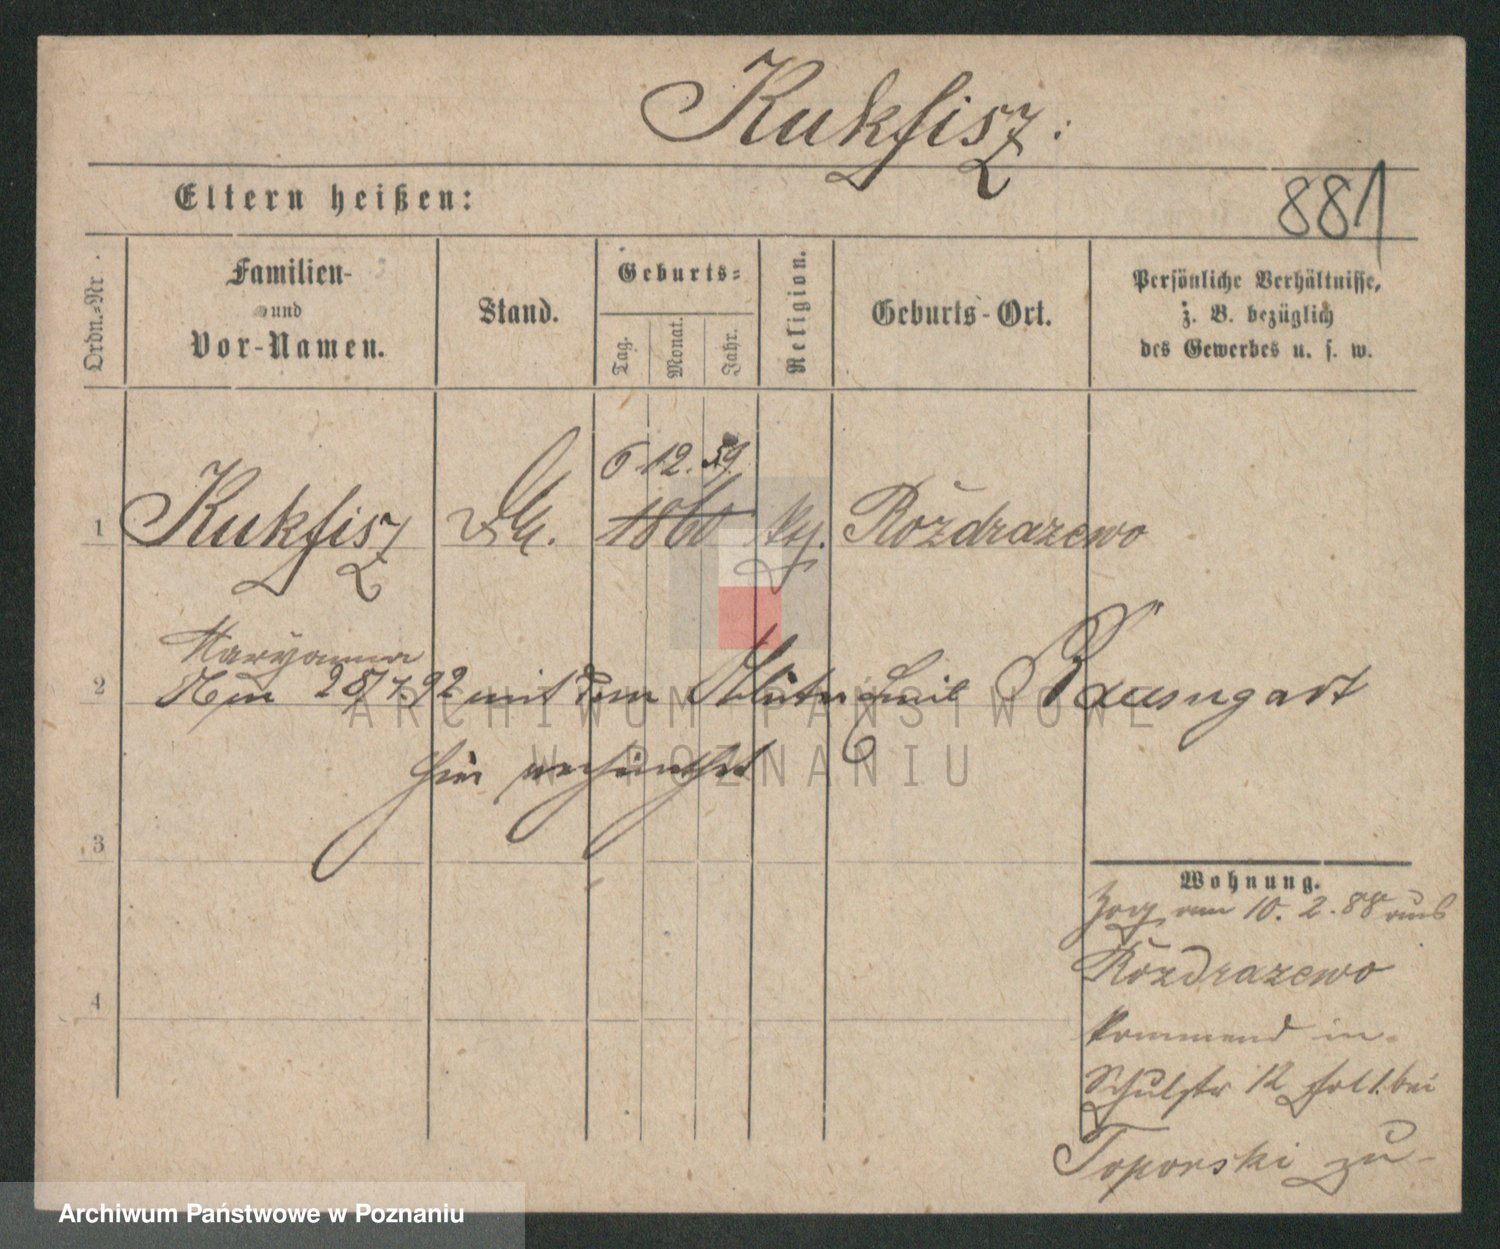 Kukfisz:
Eltern heißen:
881
Ordn.-Nr.
Familien-
und
Vor-Namen.
Stand.
Geburts-
Tag.
Monat.
Jahr.
Religion.
Geburts-Ort.
Persönliche Verhältnisse,
z. B. bezüglich
des Gewerbes u. s. w.
6 12. 59.
1 Kukfisz 1860 Rożdrazewo
Maryanna
2 28/7. 92 mit dem Emil Baumgart
hier
3
Wohnung.
Zog am 10. 2. 88 aus
Rozdrazewo
kommend in
Schulstr 12 bei
Toporski zu
4
ARCHIWUM PAŃSTWOWE
W POZNANIU
Archiwum Państwowe w Poznaniu